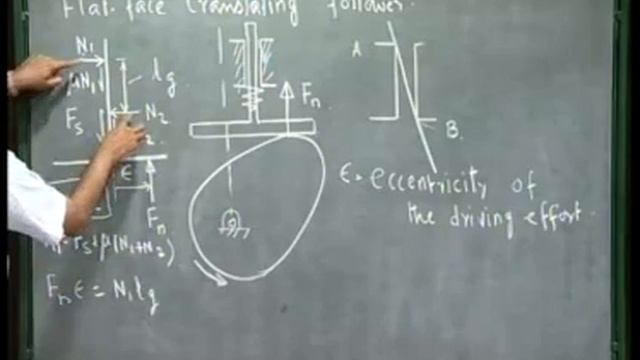 Flat-face translating follower.
N₁
μN₁
lg
Fs
N₂
ϵ
Fn
Fn
A
B.
ϵ = eccentricity of
the driving effort.
Fs + μ(N₁+N₂)
Fn ϵ = N₁ lg